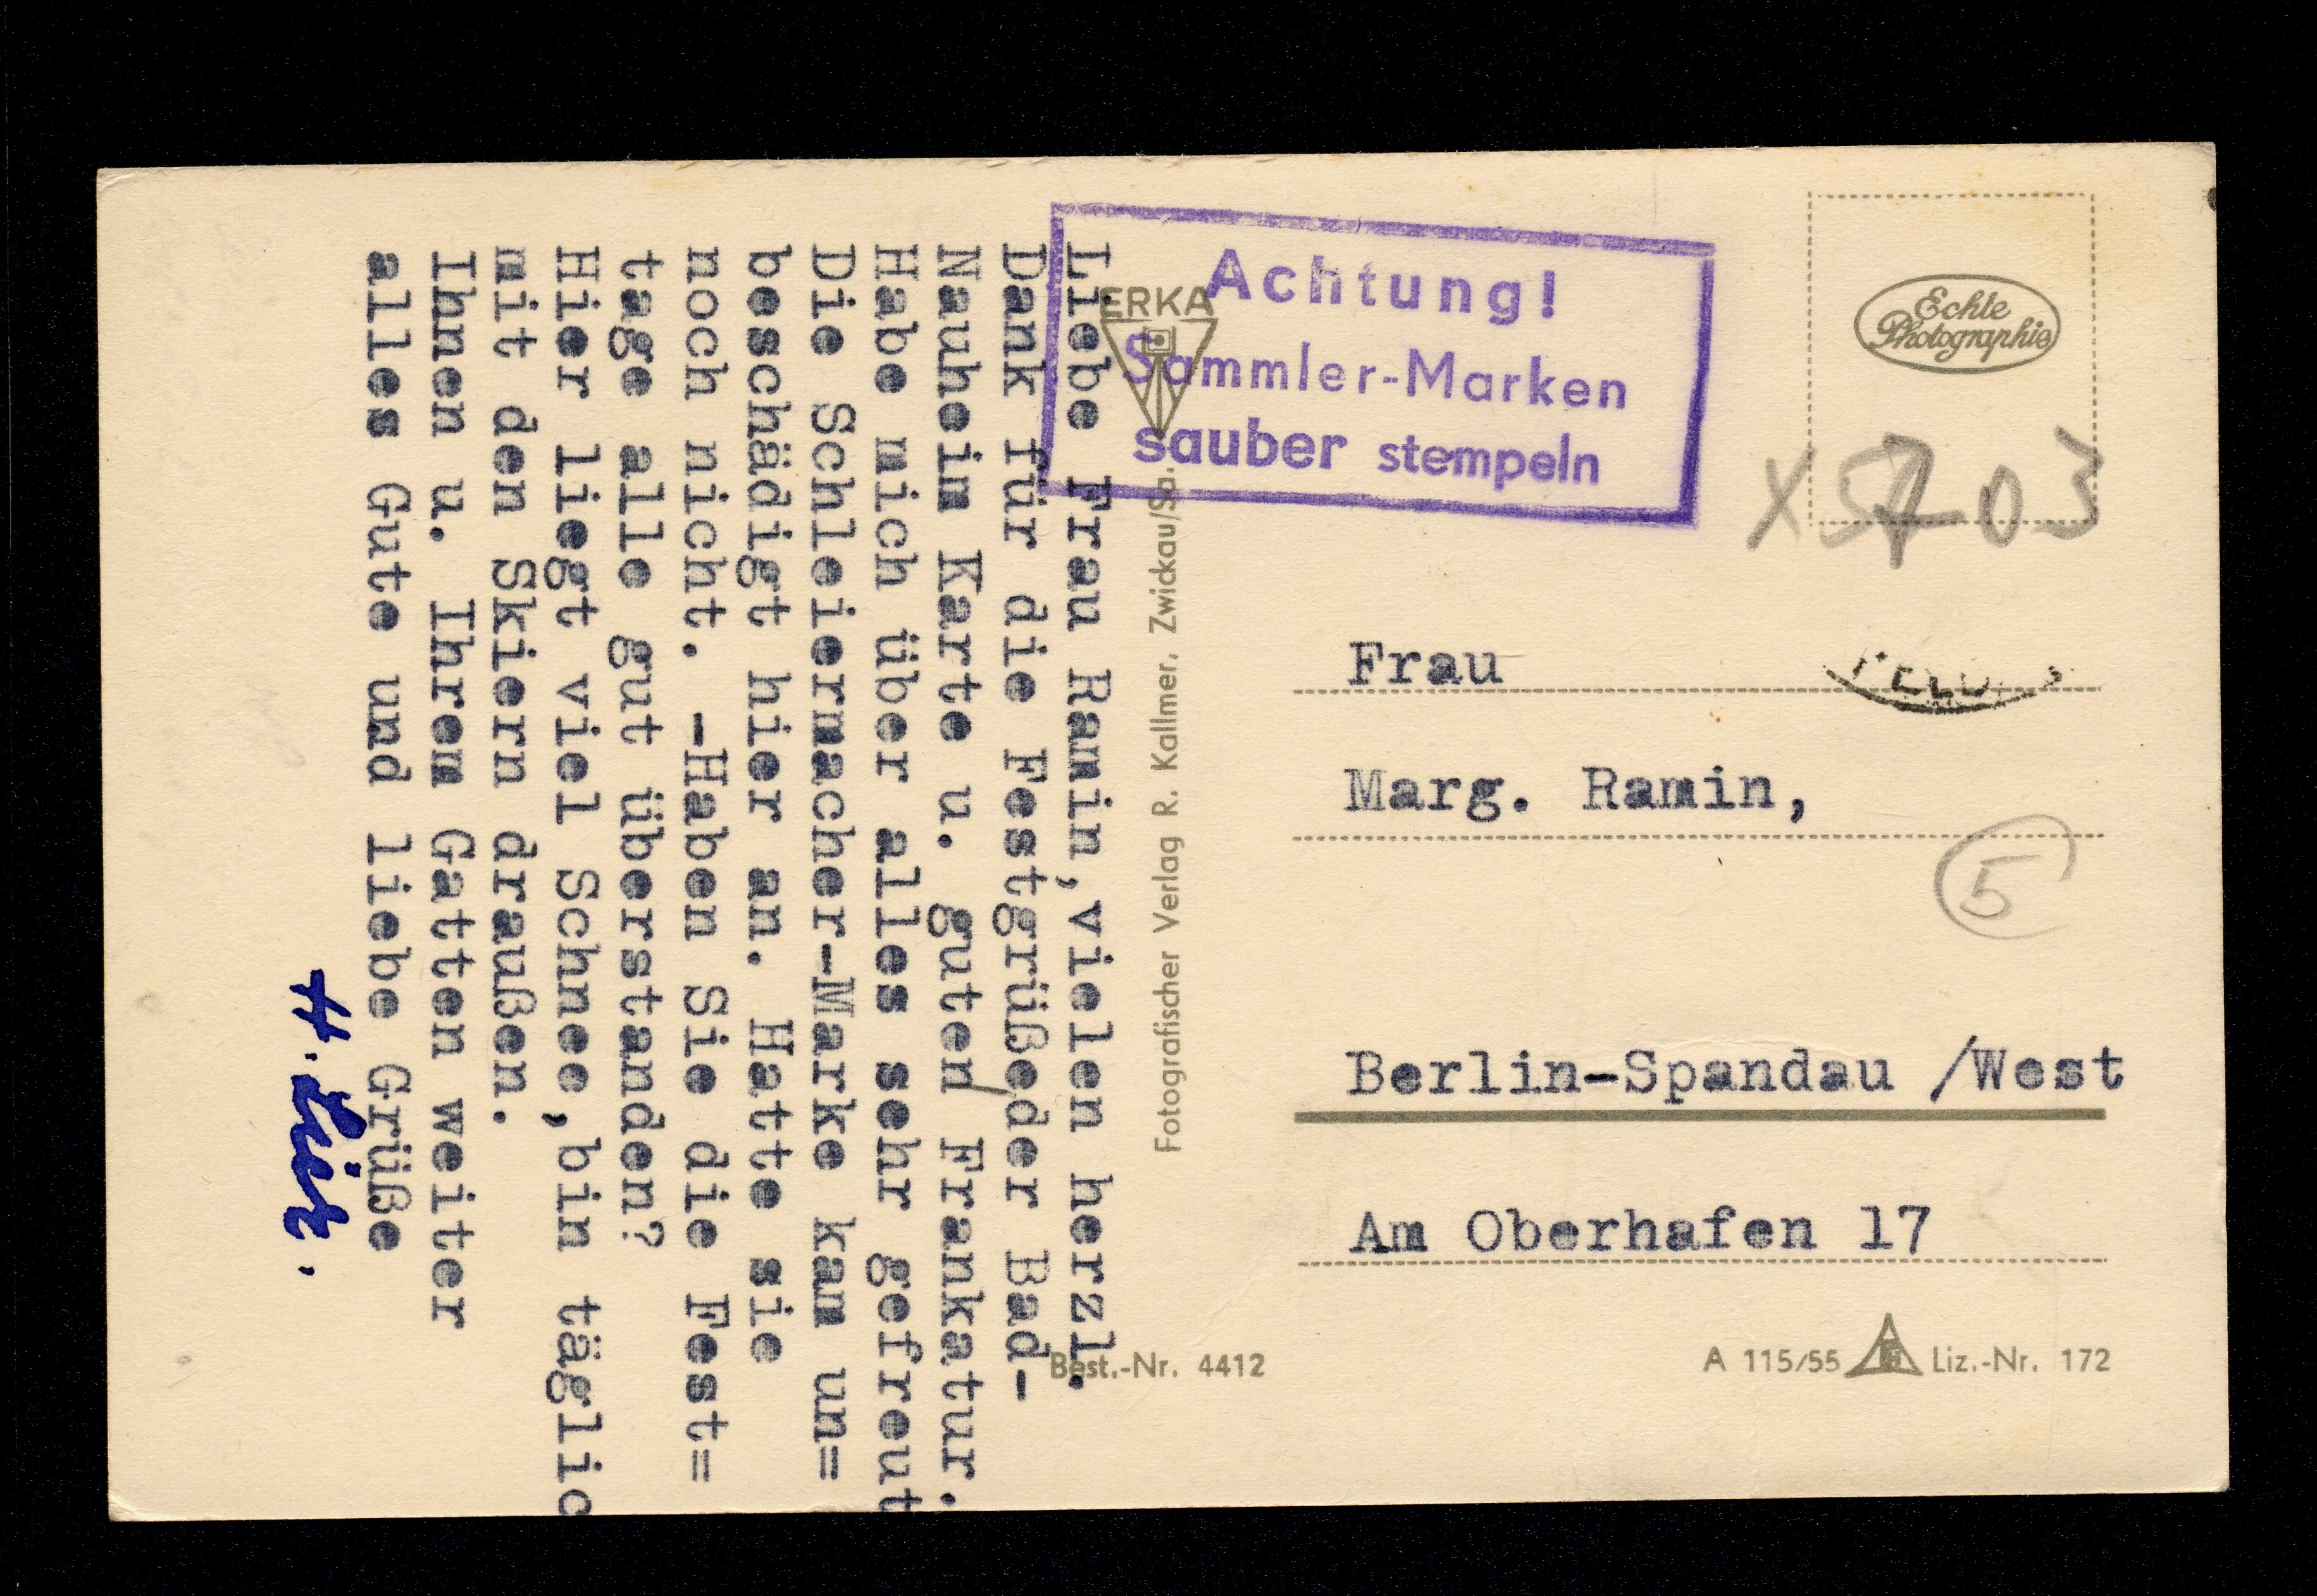 Liebe Frau Ramin,vielen herzl.
Dank für die Festgrüße/der Bad-
Nauheim Karte u. guten Frankatur.
Habe mich über alles sehr gefreut
Die Schleiermacher-Marke kam un=
beschädigt hier an. Hatte sie
noch nicht. -Haben Sie die Fest=
tage alle gut überstanden?
Hier liegt viel Schnee,bin täglic
mit den Skiern draußen.
Ihnen u. Ihrem Gatten weiter
alles Gute und liebe Grüße
H.
ERKA
Fotografischer Verlag R. Kallmer, Zwickau/Sa.
Best.-Nr. 4412
Achtung!
Sammler-Marken
sauber stempeln
Echte
Photographie
Frau
Marg. Ramin,
5
Berlin-Spandau /West
Am Oberhafen 17
A 115/55 Liz.-Nr. 172